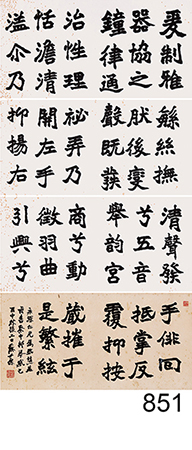 爰制雅
器協之
鐘律通
治性理
恬澹清
溢尒乃
緐絲撫
肰後
殸既發
祕弄乃
開左手
抑揚右
清聲發
兮五音
舉韵宮
商兮動
徵羽曲
引興兮
手徘回
抵掌反
覆抑按
蔵摧于
是繁絃
851